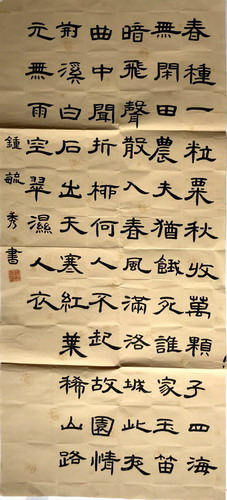 春種一粒粟秋收萬顆子四海
無閑田農夫猶餓死誰家玉笛
暗飛聲散入春風滿洛城此夜
曲中聞折柳何人不起故園情
荊溪白石出天寒紅葉稀山路
元無雨空翠濕人衣
鍾毓秀書